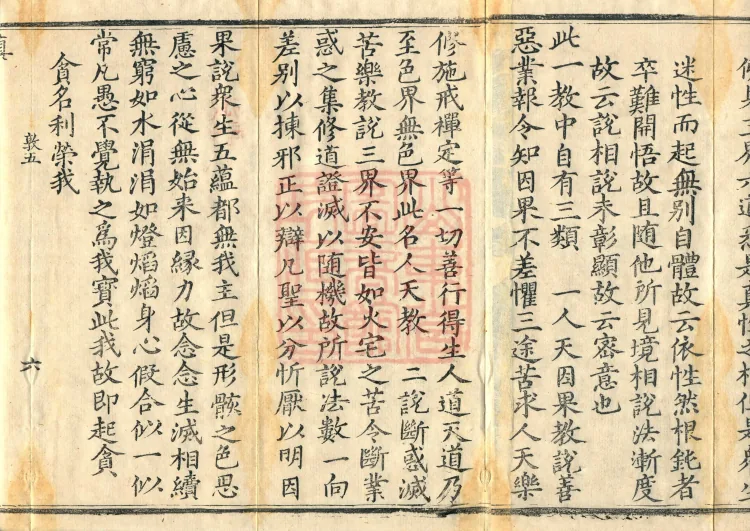 三界六道悉是真性之相但是衆生
迷性而起無別自體故云依性然根鈍者
卒難開悟故且随他所見境相說法漸度
故云說相說未彰顯故云密意也
此一教中自有三類　一人天因果教說善
惡業報令知因果不差懼三途苦求人天樂
修施戒禪定等一切善行得生人道天道乃
至色界無色界此名人天教　二說斷惑滅
苦樂教說三界不安皆如火宅之苦令斷業
惑之集修道證滅以随機故所說法數一向
差別以揀邪正以辯凡聖以分忻厭以明因
果說衆生五蘊都無我主但是形骸之色思
慮之心從無始来因緣力故念念生滅相續
無窮如水涓涓如燈焰焰身心假合似一似
常凡愚不覺執之爲我寶此我故即起貪
貪名利榮我
敦五
六